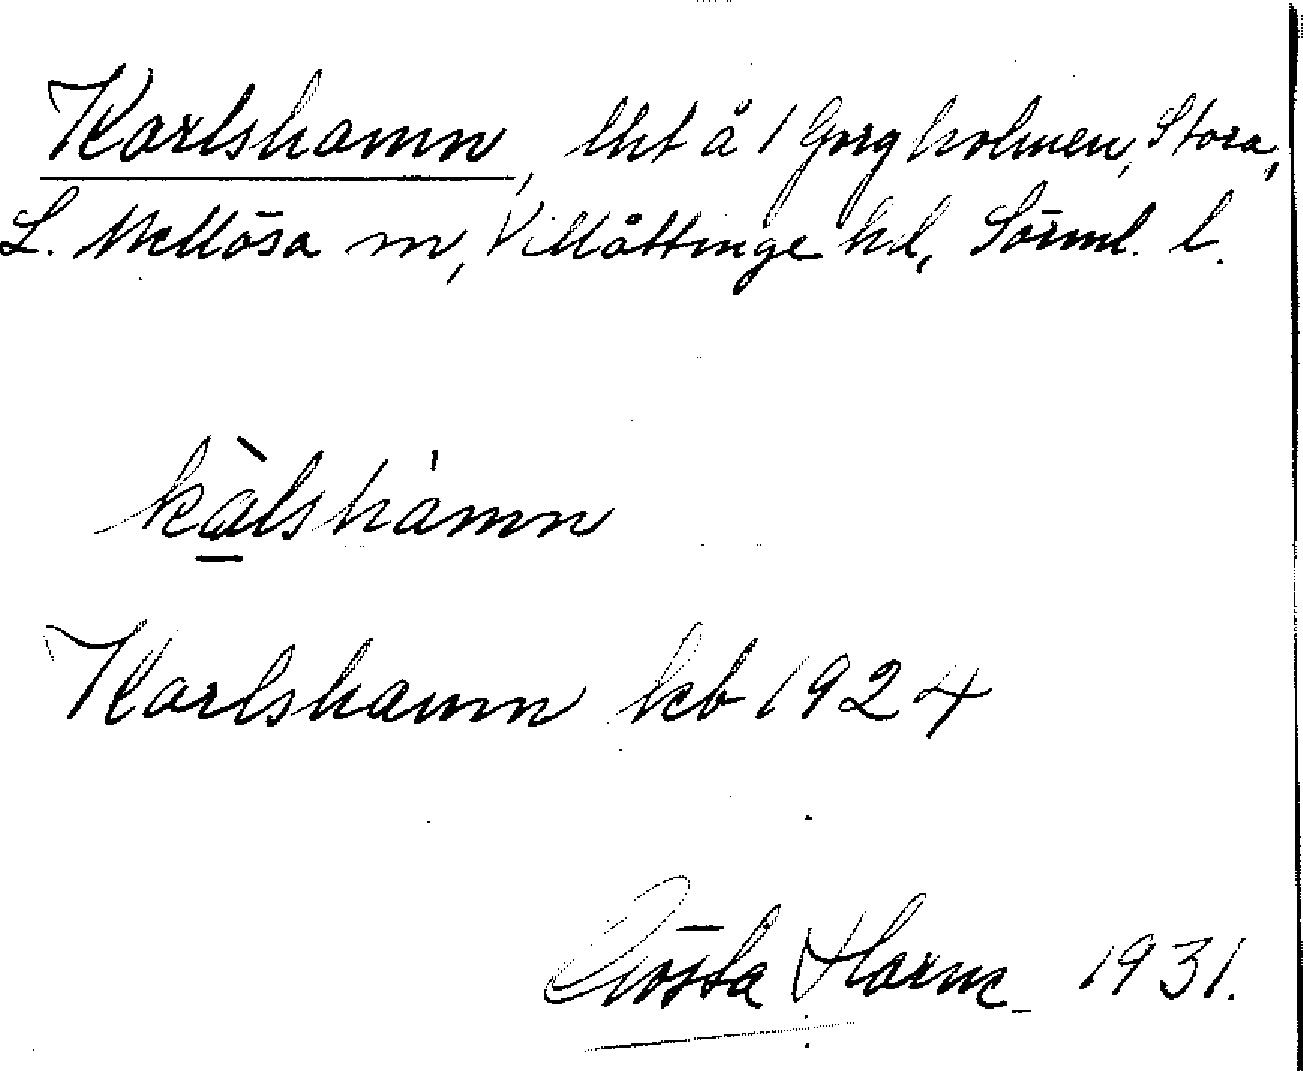 Karlshamn, lht å 1 Gorgholmen, Stora,
L. Mellösa sn, Villåttinge hd, Sörml. l.
kàlshámn
Karlshamn kb 1924
Gösta Harne 1931.